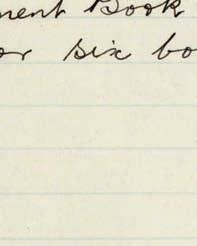 ment Book
or six bo